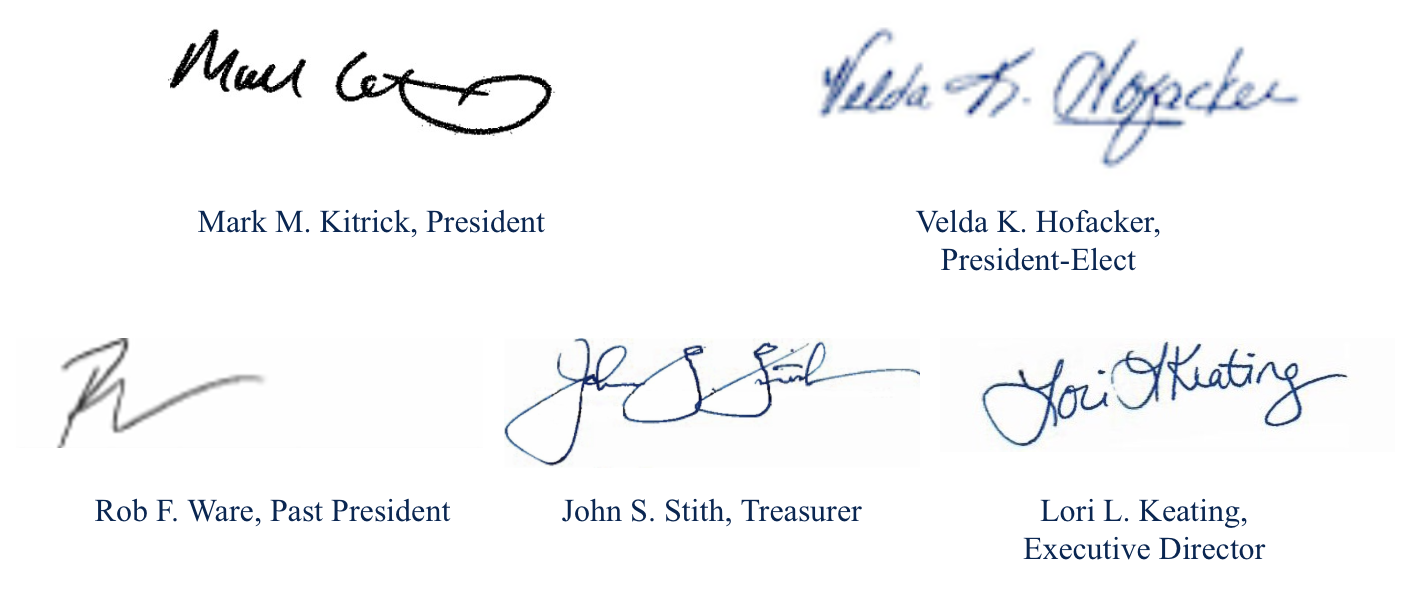 Velda K. Hofacker
Mark M. Kitrick, President
Velda K. Hofacker,
President-Elect
John S. Stith
Lori Keating
Rob F. Ware, Past President
John S. Stith, Treasurer
Lori L. Keating,
Executive Director